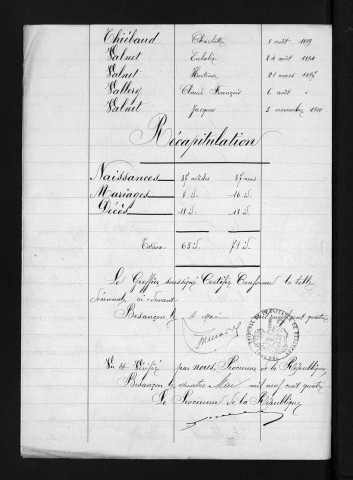 Thiébaud Charlotte 8 août 1899
Valnet Eulalie 24 août 1894
Valnet 21 mars 1897
Vallery Claude François 6 août "
Valnet Jacques 3 novembre 1900
Récapitulation
Naissances 37 37 noms
Mariages 8 d. 16 d.
Décès 18 d. 18 d.
63 d. 71 d.
Le Greffier soussigné Certifie Conforme la table
décennale ci devant
Besançon le 4 Mai mil neuf cent quatre
Vu et Vérifié par nous, Procureur de la République
Besançon le quatre Mai mil neuf cent quatre
Le Procureur de la République